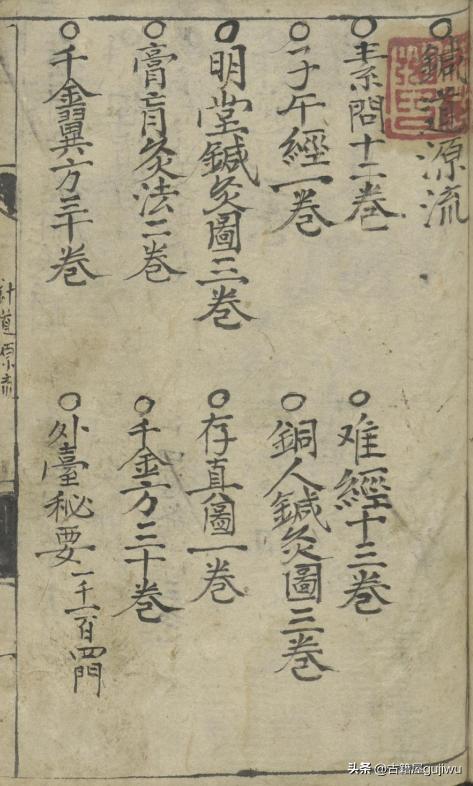 ○鍼道源流
○素問十二卷
○难經十三卷
○子午經一卷
○銅人鍼灸圖三卷
○明堂鍼灸圖三卷
○存真圖一卷
○膏肓灸法二卷
○千金方三十卷
○千金翼方三十卷
○外臺秘要一千一百四門
針道原流
头条 @古籍屋gujiwu